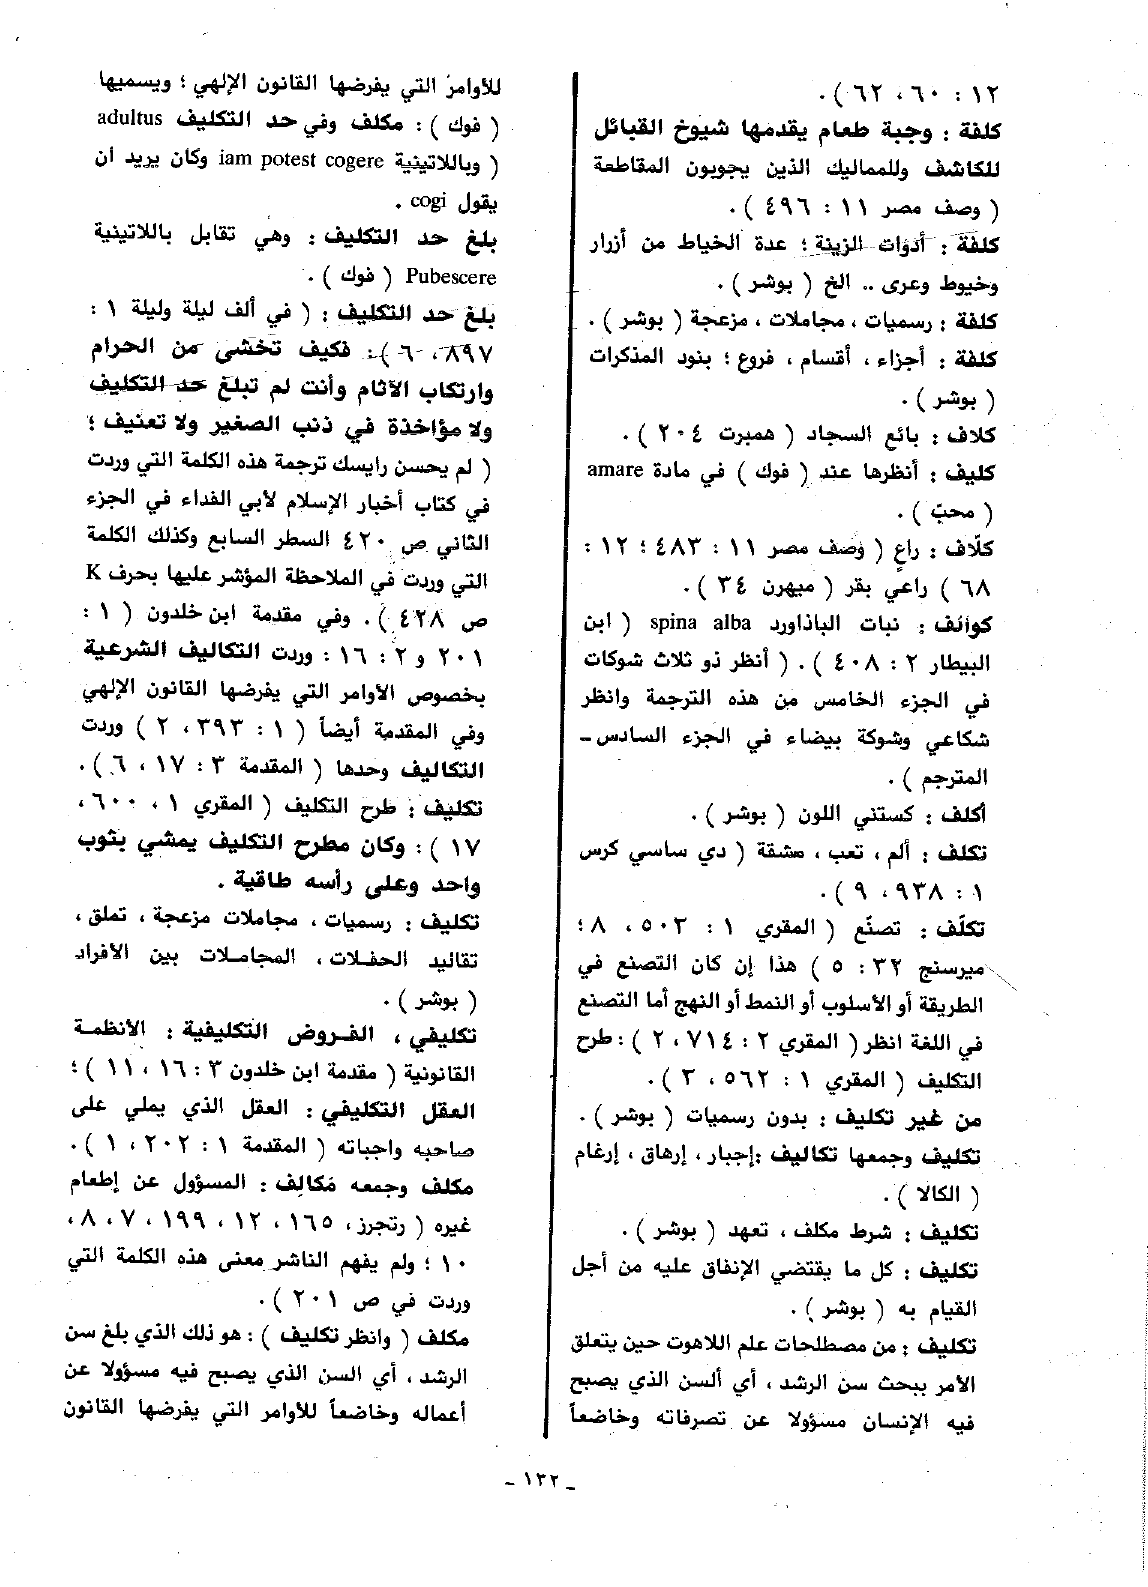 ١٢ : ٦٠ ، ٦٢ ) .
كلفة : وجبة طعام يقدمها شيوخ القبائل
للكاشف وللمماليك الذين يجوبون المقاطعة
( وصف مصر ١١ : ٤٩٦ ) .
كلفة : أدوات الزينة ؛ عدة الخياط من أزرار
وخيوط وعرى .. الخ ( بوشر ) .
كلفة : رسميات ، مجاملات ، مزعجة ( بوشر ) .
كلفة : أجزاء ، أقسام ، فروع ؛ بنود المذكرات
( بوشر ) .
كلاف : بائع السجاد ( همبرت ٢٠٤ ) .
كليف : أنظرها عند ( فوك ) في مادة amare
( محبّ ) .
كلّاف : راعٍ ( وصف مصر ١١ : ٤٨٣ ؛ ١٢ :
٦٨ ) راعي بقر ( ميهرن ٣٤ ) .
كوالف : نبات الباذاورد spina alba ( ابن
البيطار ٢ : ٤٠٨ ) . ( أنظر ذو ثلاث شوكات
في الجزء الخامس من هذه الترجمة وانظر
شكاعي وشوكة بيضاء في الجزء السادس -
المترجم ) .
أكلف : كستني اللون ( بوشر ) .
تكلف : ألم ، تعب ، مشقة ( دي ساسي كرس
١ : ٩٣٨ ، ٩ ) .
تكلّف : تصنّع ( المقري ١ : ٥٠٣ ، ٨ ؛
ميرسنج ٣٢ : ٥ ) هذا إن كان التصنع في
الطريقة أو الأسلوب أو النمط أو النهج أما التصنع
في اللغة انظر ( المقري ٢ : ٧١٤ ، ٢ ) : طرح
التكليف ( المقري ١ : ٥٦٢ ، ٣ ) .
من غير تكليف : بدون رسميات ( بوشر ) .
تكليف وجمعها تكاليف : إجبار ، إرهاق ، إرغام
( الكالا ) .
تكليف : شرط مكلف ، تعهد ( بوشر ) .
تكليف : كل ما يقتضي الإنفاق عليه من أجل
القيام به ( بوشر ) .
تكليف : من مصطلحات علم اللاهوت حين يتعلق
الأمر ببحث سن الرشد ، أي ألسن الذي يصبح
فيه الإنسان مسؤولا عن تصرفاته وخاضعاً
للأوامر التي يفرضها القانون الإلهي ؛ ويسميها
( فوك ) : مكلف وفي حد التكليف adultus
( وباللاتينية iam potest cogere وكان يريد ان
يقول cogi .
بلغ حد التكليف : وهي تقابل باللاتينية
Pubescere ( فوك ) .
بلغ حد التكليف : ( في ألف ليلة وليلة ١ :
٨٩٧ ، ٦ ) : فكيف تخشى من الحرام
وارتكاب الآثام وأنت لم تبلغ حد التكليف
ولا مؤاخذة في ذنب الصغير ولا تعنيف ؛
( لم يحسن رايسك ترجمة هذه الكلمة التي وردت
في كتاب أخبار الإسلام لأبي الفداء في الجزء
الثاني ص ٤٢٠ السطر السابع وكذلك الكلمة
التي وردت في الملاحظة المؤشر عليها بحرف K
ص ٤٢٨ ) . وفي مقدمة ابن خلدون ( ١ :
٢٠١ و ٢ : ١٦ : وردت التكاليف الشرعية
بخصوص الأوامر التي يفرضها القانون الإلهي
وفي المقدمة أيضاً ( ١ : ٣٩٣ ، ٢ ) وردت
التكاليف وحدها ( المقدمة ٣ : ١٧ ، ٦ ) .
تكليف : طرح التكليف ( المقري ١ ، ٦٠٠ ،
١٧ ) : وكان مطرح التكليف يمشي بثوب
واحد وعلى رأسه طاقية .
تكليف : رسميات ، مجاملات مزعجة ، تملق ،
تقاليد الحفلات ، المجاملات بين الأفراد
( بوشر ) .
تكليفي ، الفروض التكليفية : الأنظمة
القانونية ( مقدمة ابن خلدون ٣ : ١٦ ، ١١ ) ؛
العقل التكليفي : العقل الذي يملي على
صاحبه واجباته ( المقدمة ١ : ٢٠٢ ، ١ ) .
مكلف وجمعه مَكالف : المسؤول عن إطعام
غيره ( رتجرز ، ١٦٥ ، ١٢ ، ١٩٩ ، ٧ ، ٨ ،
١٠ ؛ ولم يفهم الناشر معنى هذه الكلمة التي
وردت في ص ٢٠١ ) .
مكلف ( وانظر تكليف ) : هو ذلك الذي بلغ سن
الرشد ، أي السن الذي يصبح فيه مسؤولا عن
أعماله وخاضعاً للأوامر التي يفرضها القانون
- ١٣٢ -